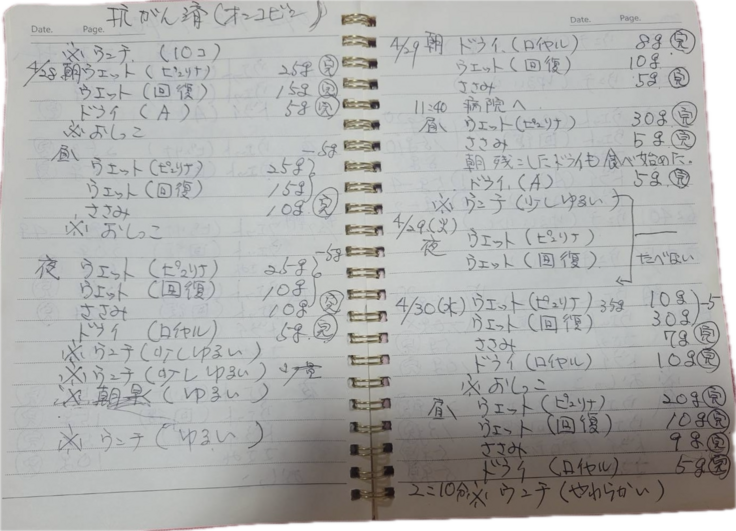 Date. Page.
抗がん済(オンコビン)
※ウンチ (10コ)
4/28 朝 ウェット(ピュリナ) 25g 完
ウェット(回復) 15g 完
ドライ (A) 5g 完
※おしっこ
昼 -5g
ウェット(ピュリナ) 25g
ウェット(回復) 15g
ささみ 10g 完
※ おしっこ
-5g
夜 ウェット(ピュリナ) 25g
ウェット(回復) 10g
ささみ 10g 完
ドライ (ロイヤル) 5g 完
※ ウンチ(少しゆるい)
※ ウンチ(少しゆるい) 少量
※ (ゆるい)
※ ウンチ (ゆるい)
Date. Page.
4/29 朝 ドライ.(ロイヤル) 8g 完
ウェット(回復) 10g
ささみ 5g 完
11:40 病院へ
昼 ウェット(ピュリナ) 30g 完
ささみ 5g 完
朝残こしたドライも食べ始めた.
ドライ.(A) 5g 完
※ ウンチ(少しゆるい)
4/29(火)
夜 ウェット(ピュリナ)
ウェット(回復) たべない
4/30(水) ウェット(ピュリナ) 35g 10g -5
ウェット(回復) 30g
ささみ 7g 完
ドライ(ロイヤル) 10g 完
※おしっこ
昼 ウェット(ピュリナ) 20g 完
ウェット(回復) 10g 完
ささみ 9g 完
ドライ (ロイヤル) 5g 完
2=10分 ※ ウンチ(やわらかい)